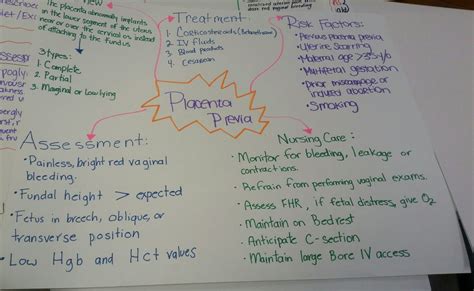 The placenta abnormally implants
in the lower segment of the uterus
near or over the cervical os instead
of attaching to the fundus
3 types:
1. Complete
2. Partial
3. Marginal or low lying
Treatment:
1. Corticosteroids (Betamethasone)
2. IV fluids
3. Blood products
4. Cesarean
Risk Factors:
• Previous placenta previa
• Uterine Scarring
• Maternal age >35 y/o
• Multifetal gestation
• Prior miscarriage or
induced abortion
• Smoking
Placenta
Previa
Assessment:
• Painless, bright red vaginal
bleeding.
• Fundal height > expected
• Fetus in breech, oblique, or
transverse position
• Low Hgb and Hct values
Nursing Care:
• Monitor for bleeding, leakage or
contractions.
• Refrain from performing vaginal exams.
• Assess FHR, if fetal distress, give O2
• Maintain on Bedrest
• Anticipate C-section
• Maintain large Bore IV access